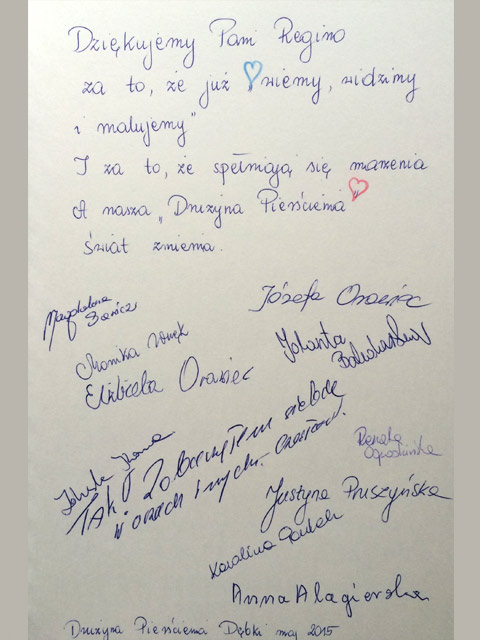 Dziękujemy Pani Regino
za to, że już wiemy, widzimy
i malujemy"
I za to, że spełniają się marzenia
A nasza „Drużyna Pierścienia"
świat zmienia.
Magdalena
Józefa Orawiec
Monika
Jolanta
Elżbieta Orawiec
TAK! Zobaczyłem siebie
w oczach innych.
Renata
Justyna Pruszyńska
Karolina
Anna Alagierska
Drużyna Pierścienia Dębki maj 2015